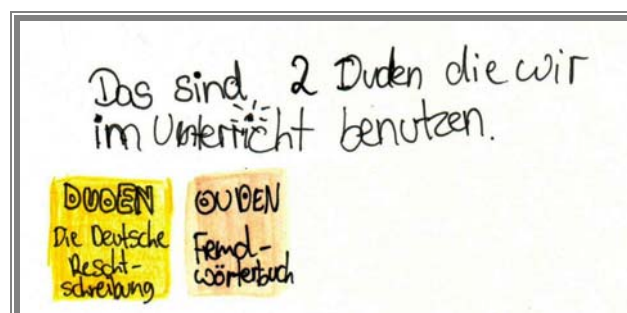 Das sind 2 Duden die wir
im Unterricht benutzen.
DUDEN
Die Deutsche
Rescht-
schreibung
DUDEN
Fremd-
wörterbuch